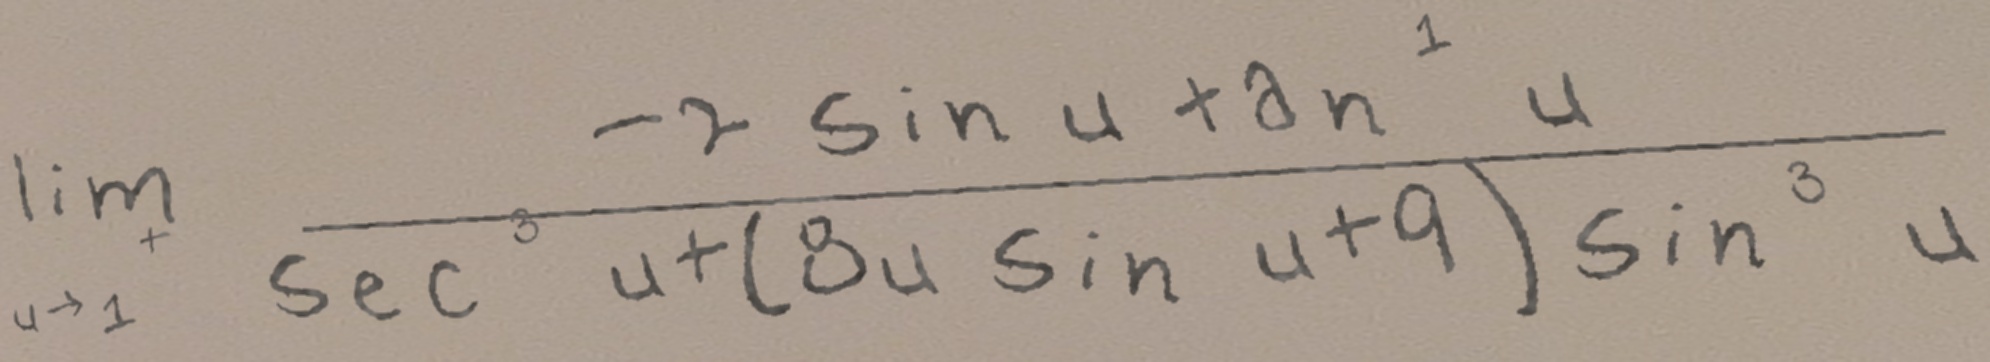 \lim_{u \to 1^+} \frac{-2 \sin u \tan^1 u}{\sec^3 u + (8u \sin u + 9) \sin^3 u}